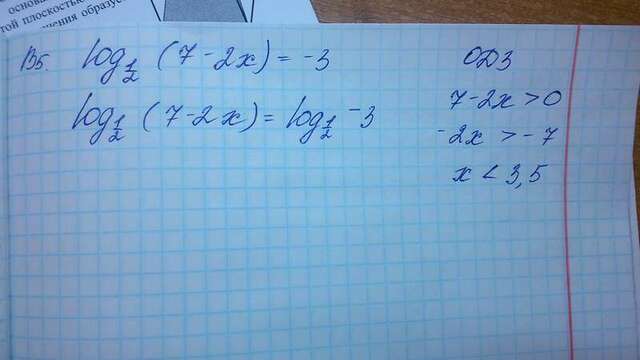 основа
той плоскостью
чения образует
B5. log_{1/2} (7-2x) = -3
log_{1/2} (7-2x) = log_{1/2} -3
ОДЗ
7-2x>0
-2x > -7
x < 3,5